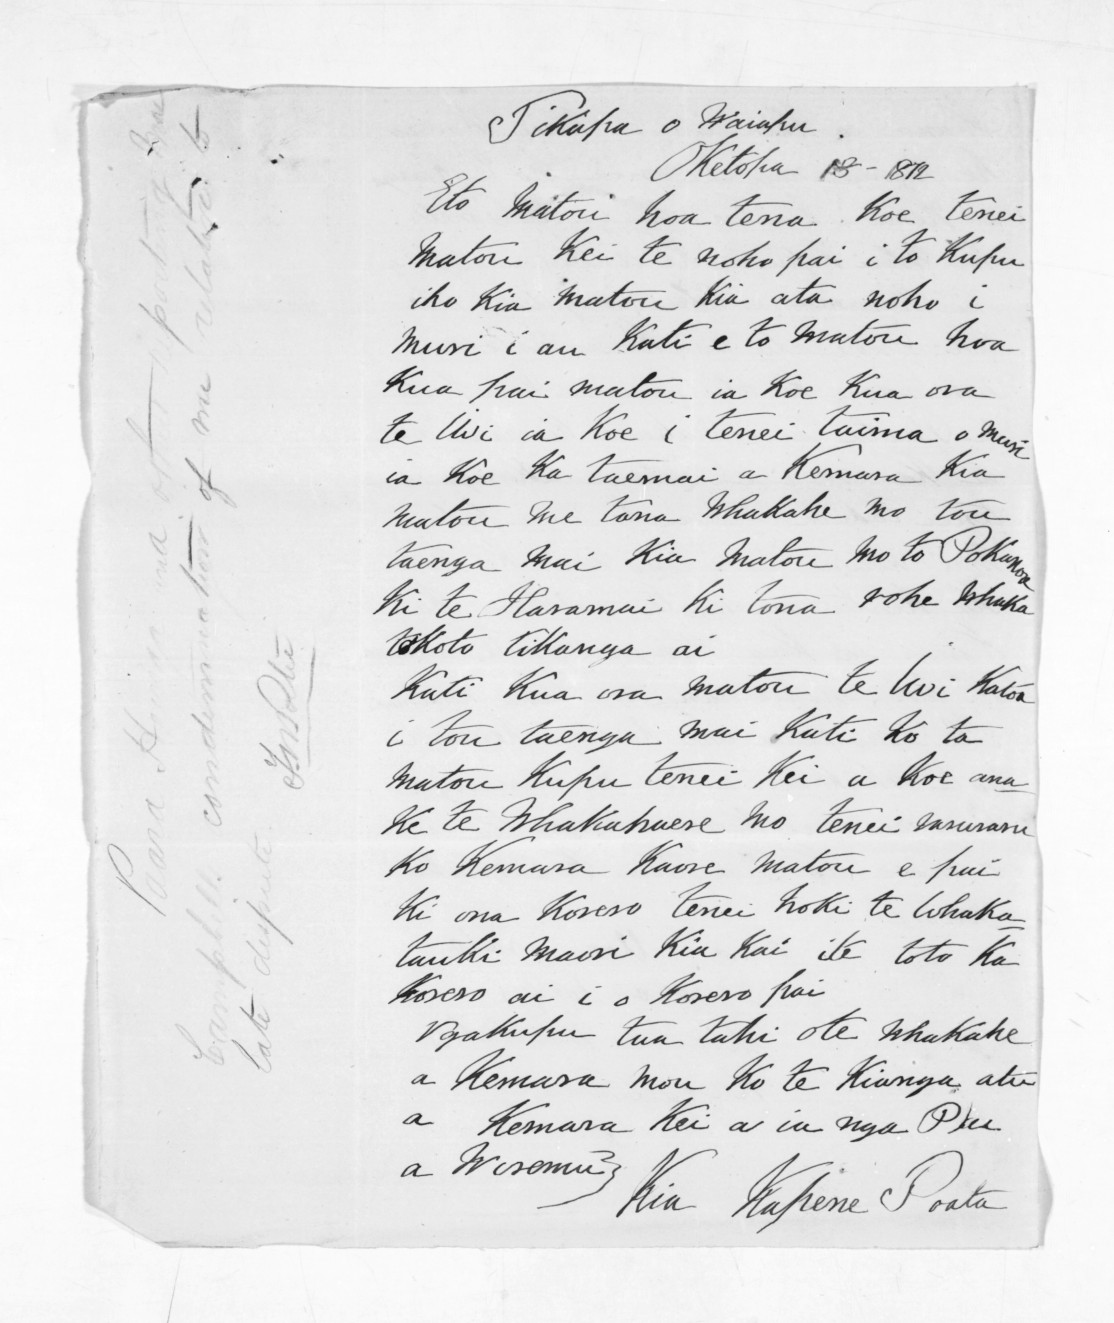 Tikapa o Waiapu
Oketopa 13 - 1872
Eto Matou hoa tena Koe tenei
Matou Kei te noho pai i to Kupu
iho Kia Matou Kia ata noho i
Muri i au Kati e to Matou hoa
Kua pai matou ia Koe Kua ora
te Uvi ia Koe i tenei taima o muri
ia Koe Ka taemai a Kemara Kia
Matou me tana Whakahe mo tou
taenga mai Kia Matou Mo to Pokanoa
Ki te Haramai Ki tona rohe Whaka
tokoto tikanga ai
Kati Kua ora Matou te Uvi Katoa
i tou taenga mai Kati Ko ta
Matou Kupu tenei Kei a Koe ana-
Ke te Whakahaere mo tenei raruraru
Ko Kemara Kaore Matou e pai
Ki ona Korero tenei hoki te Whaka-
tauki maori Kia Kai ite toto Ka
Korero ai i o Korero pai
Ngakupu tua tahi ote Whakahe
a Kemara mou Ko te Kianga atu
a Kemara Kei a ia nga Pu
a Wiremu
Kia Kapene Poata
Paara H
Campbell condemnation of me relative to
late dispute